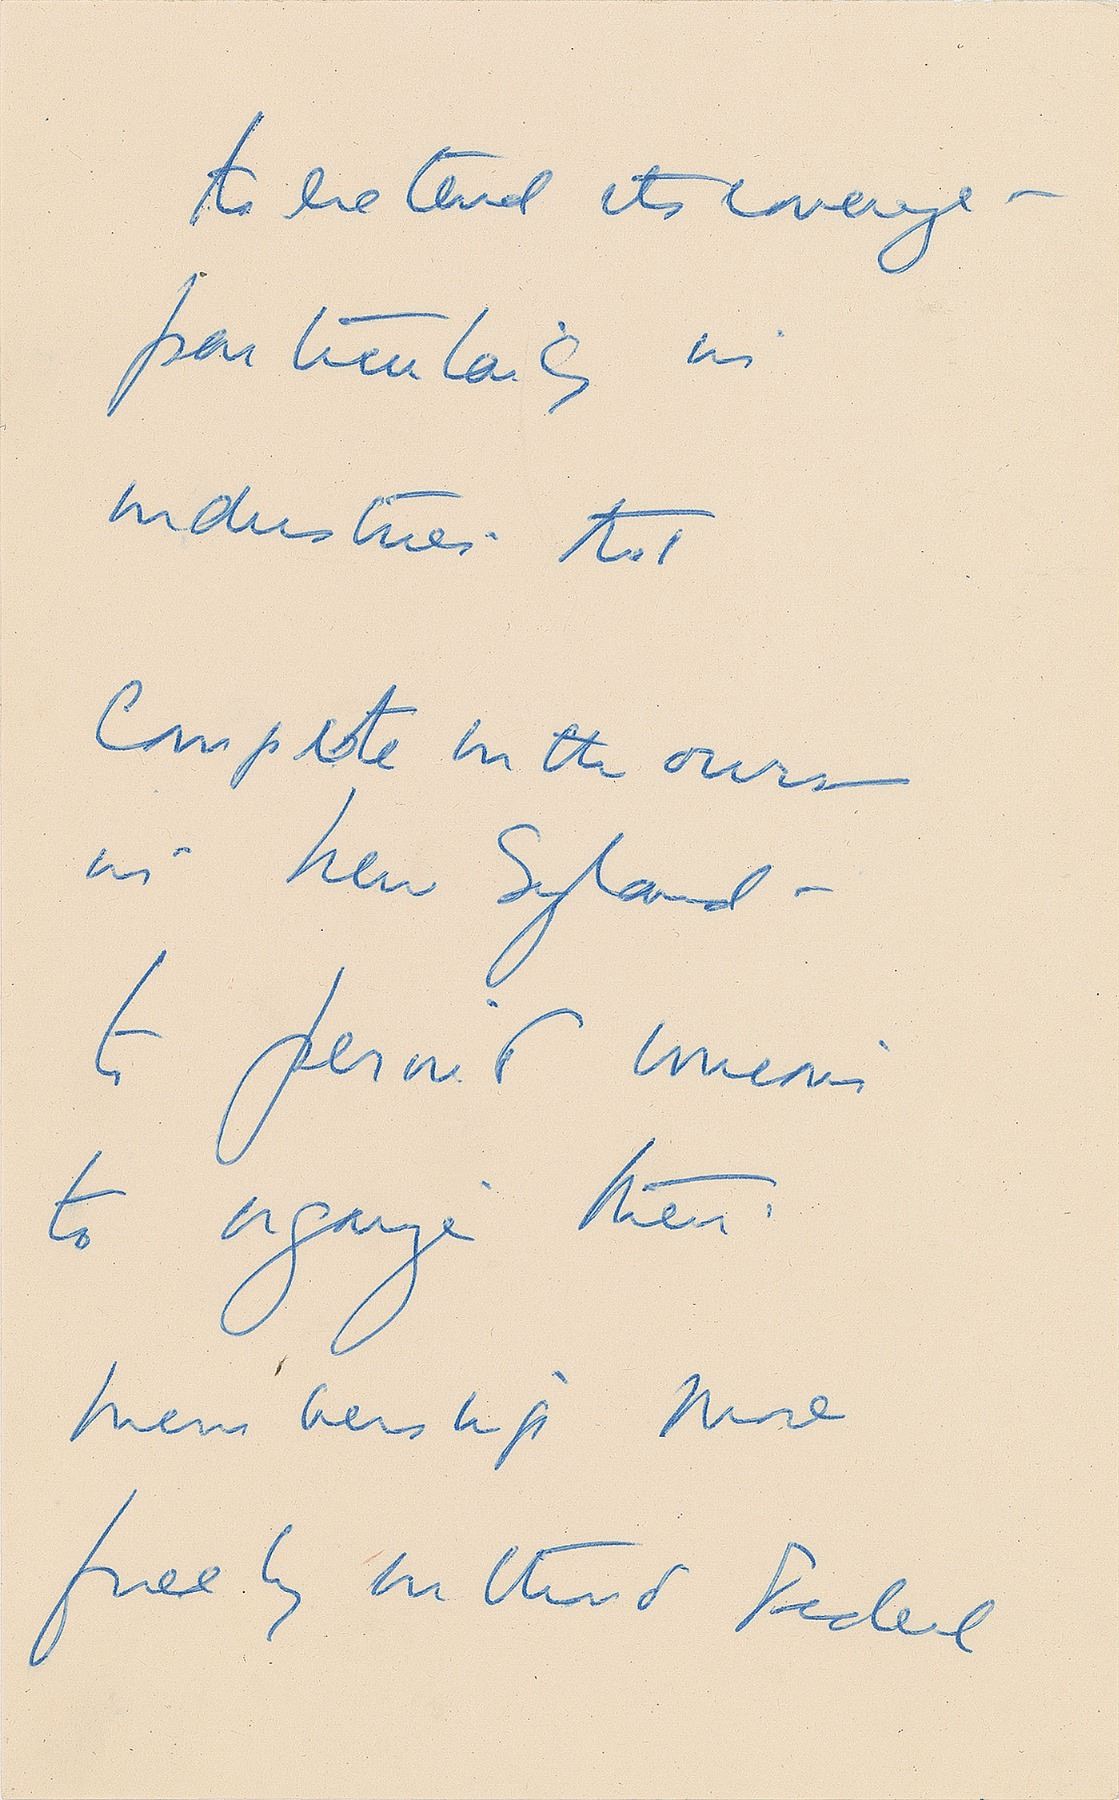 to extend its coverage –
particularly in
industries that
compete with ours
in New England –
to permit unions
to organize their
membership more
freely without Federal